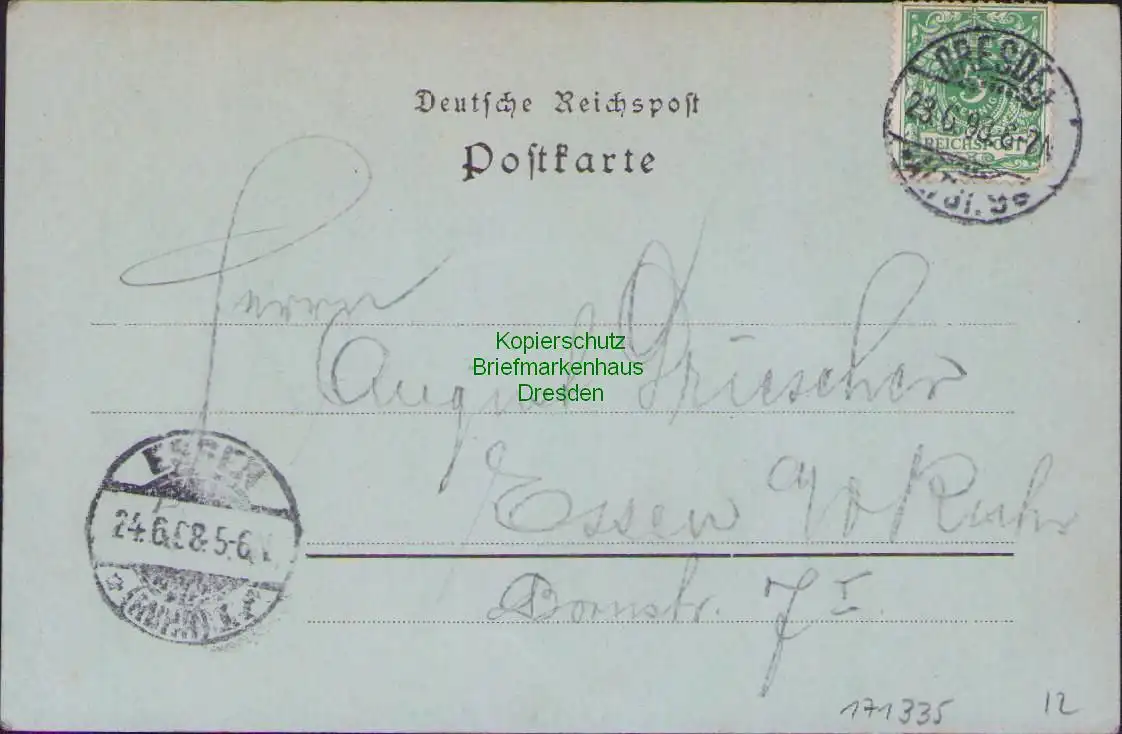 Deutsche Reichspost
Postkarte
DRESDEN
23.6.98.6-7N
5
PFENNIG
REICHSPOST
Herrn
August Driescher
Kopierschutz
Briefmarkenhaus
Dresden
Essen a/d Ruhr
Bornstr. 7 I.
ESSEN
24.6.98.5-6
(RUHR)
171335
12